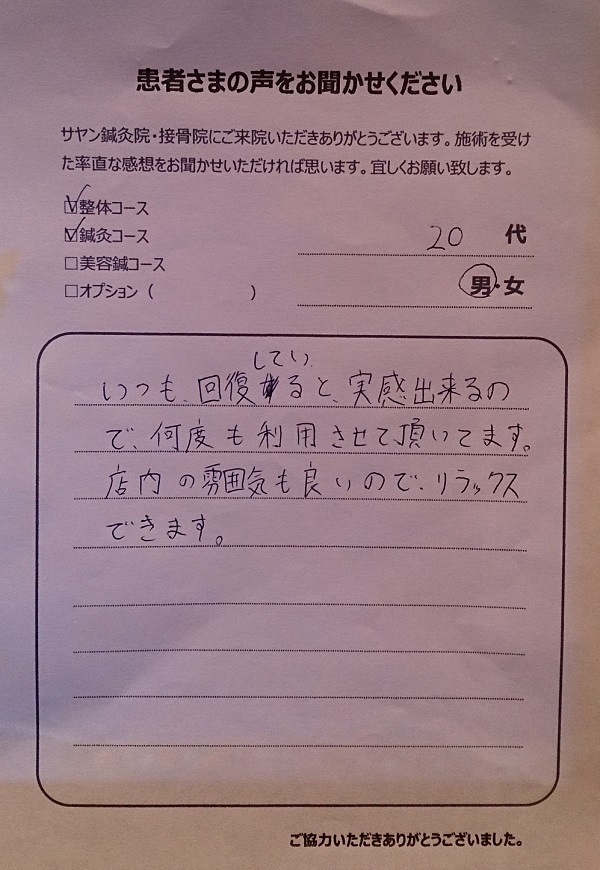 患者さまの声をお聞かせください
サヤン鍼灸院・接骨院にご来院いただきありがとうございます。施術を受け
た率直な感想をお聞かせいただければ思います。宜しくお願い致します。
☑整体コース
☑鍼灸コース
20 代
□美容鍼コース
男・女
□オプション（　　　　　　）
してい
いつも、回復ると、実感出来るの
で、何度も利用させて頂いてます。
店内の雰囲気も良いので、リラックス
できます。
ご協力いただきありがとうございました。